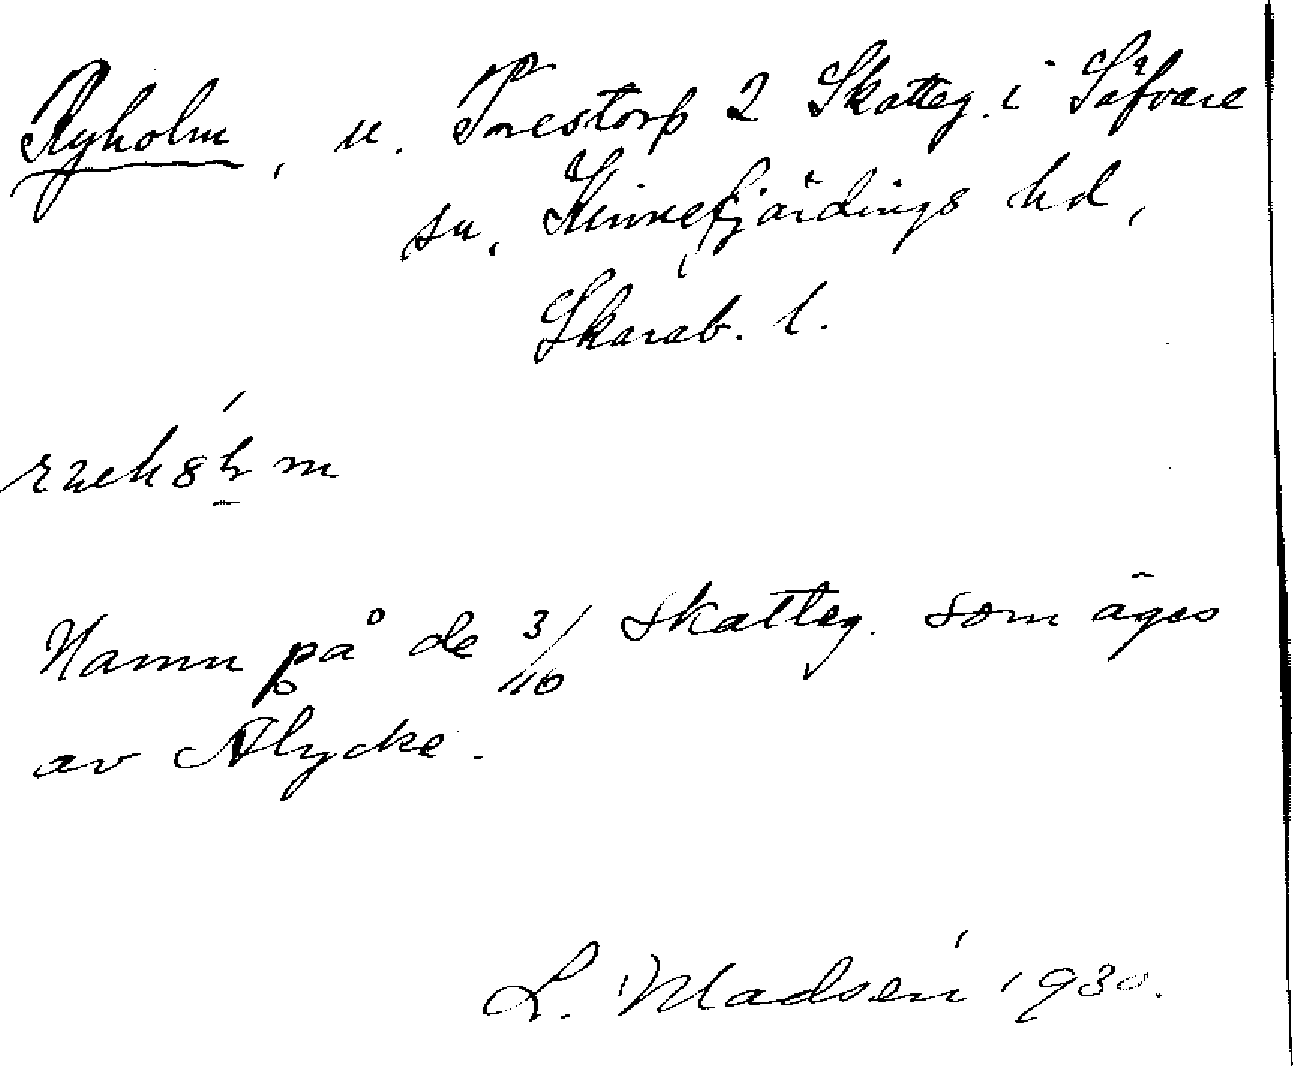 Ryholm, u. Torestorp 2 Skatteg. i Såfvare
sn, Kinnefjärdings hd,
Skarab. l.
Namn på de 3/10 skatteg. som äges
av Alycke.
L. Madsén 1930.